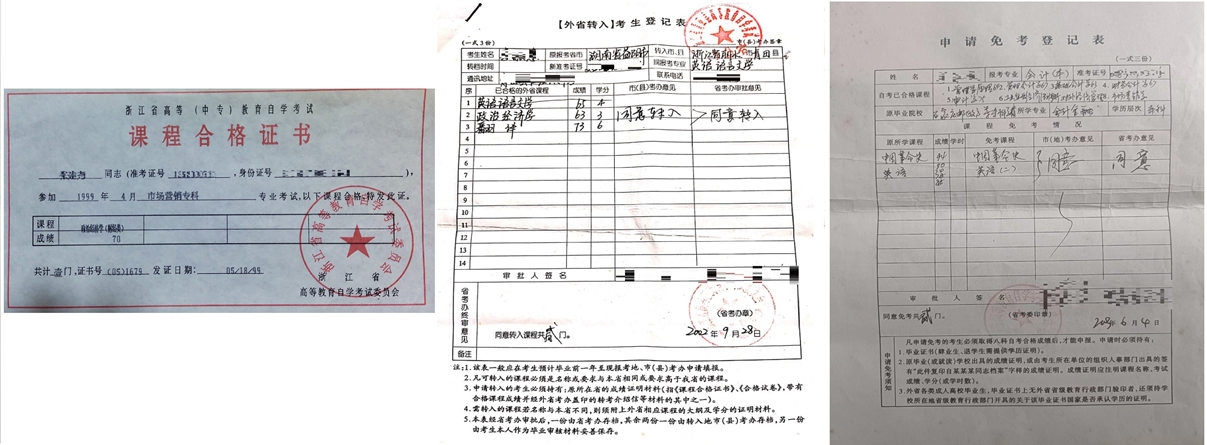 浙江省高等（中专）教育自学考试
课程合格证书
同志(准考证号
,身份证号
),
参加 1999 年 4 月 市场营销专科 专业考试,以下课程合格,特发此证。
课程
成绩 70
共计 壹 门,证书号 (05)1679 发证日期: 05/18/99
浙江省
高等教育自学考试委员会
浙江省高等教育自学考试委员会
【外省转入】考生登记表
(一式3份)
市(县)考办签章
考生姓名
原报考省市
湖南省益阳市
转入市、县
浙江省丽水 青田县
转档时间
新准考证号
现报考专业
英语语言文学
通讯地址
联系电话
序
已合格的外省课程
成绩
学分
市(县)考办意见
省考办审批意见
1 英语语言文学 65 4
2 政治经济学 63 3 同意转入 同意转入
3 翻译 73 6
4
5
6
7
8
9
10
11
12
13
14
审批人签名
省考办终审意见
(省考办章)
同意转入课程共 贰 门。
2002 年 9 月 28 日
备注
注:1.该表一般应在考生预计毕业前一年呈现报考地、市(县)考办申请填报。
2.凡可转入的课程必须是名称或要求与本省相同或要求高于我省的课程。
3.申请转入的考生必须持有:原所在省的成绩证明材料(指《课程合格证书》、《合格试卷》,带有
合格课程成绩并经外省考办盖印的转考介绍信等材料的其中之一)。
4.需转入的课程若名称与本省不同,则须附上外省相应课程的大纲及学分的证明材料。
5.本表经省考办审批后,一份由省考办存档,其余两份一份由转入地市(县)考办存档,另一份
由考生本人作为毕业审核材料妥善保存。
申请免考登记表
(一式三份)
姓名
报考专业
会计(本)
准考证号
自考已合格课程
原毕业院校
所学专业
会计金融
学历层次
专科
课程免考情况
原所学课程
成绩
学时
免考课程
市(地)考办意见
省考办意见
中国革命史
中国革命史
同意
同意
英语
英语(二)
审批人签名
同意免考共 贰 门。
(省考委印章)
6 月 4 日
申请免考须知
凡申请免考的考生必须取得八科自考合格成绩后,才能申报。申请时必须持有:
1.毕业证书(肄业生、退学生需提供学历证明)。
2.原毕业(或就读)学校出具的成绩证明,或由考生所在单位的组织人事部门出具的签
有“此件复印自某某某同志档案”字样的成绩证明。成绩证明应注明课程名称、考试
成绩、学分(或学时数)。
3.外省各类成人高校毕业生,毕业证书上无外省省级教育行政部门验印者,还须持学
校所在地省级教育行政部门开具的关于该毕业证书国家是否承认学历的证明。